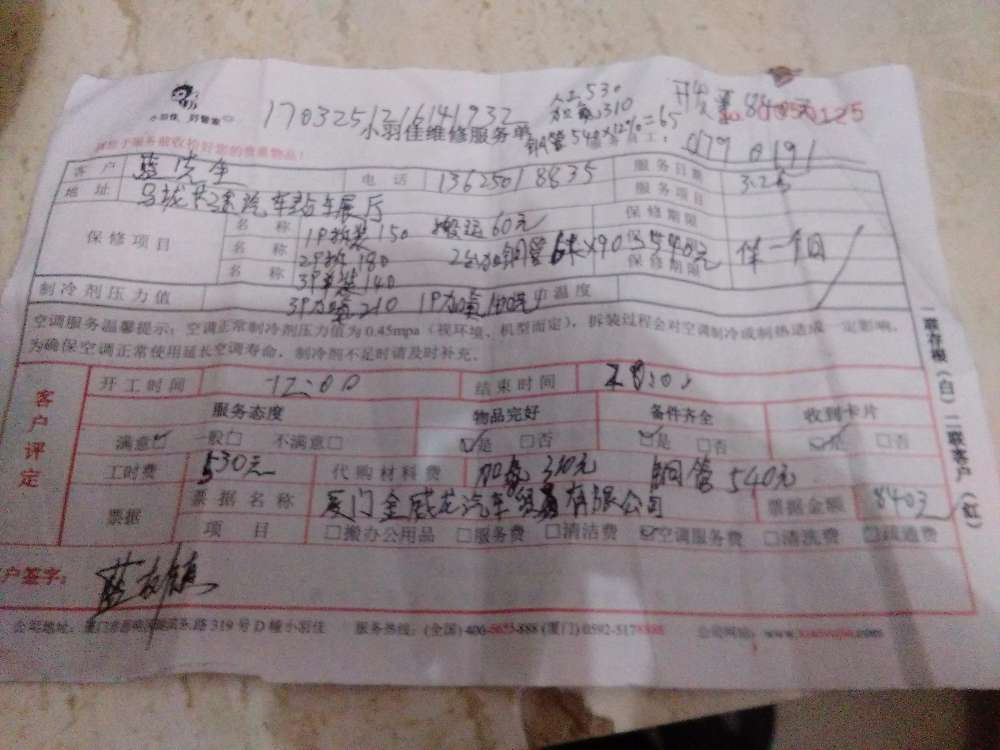 小羽佳 好管家
170325121614 1932
人工530
加氨310
开发票840元
小羽佳维修服务单
铜管540×12%=65
0179 0191
请您于服务前收检好您的贵重物品!
客户 蓝先生 电话 13625018835 服务日期 3.26
地址 汽车站车展厅 服务项目
保修项目 名称 1P拆装150 搬运60元 保修期限
名称 2P拆180 2台加铜管6米×90 540元 保修期限 保一个月
名称 3P单装140
制冷剂压力值 3P加氨210 1P加氨100元 温度
空调服务温馨提示:空调正常制冷剂压力值为0.45mpa(视环境、机型而定),拆装过程会对空调制冷或制热造成一定影响,
为确保空调正常使用延长空调寿命,制冷剂不足时请及时补充。
客户评定
开工时间 12:00 结束时间
服务态度 物品完好 备件齐全 收到卡片
满意☑ 一般□ 不满意□ ☑是 □否 ☑是 □否 ☑是 □否
工时费 530元 代购材料费 加氨310元 铜管540元
票据 票据名称 厦门金威龙汽车贸易有限公司 票据金额 840元
项目 □搬办公用品 □服务费 □清洁费 ☑空调服务费 □清洗费 □疏通费
户签字:
公司地址: 路319号D幢小羽佳 服务热线:(全国)400-6675-888 (厦门)0592-5178888 公司网站:www.xiaoyujia.com
一联存根(白)二联客户(红)